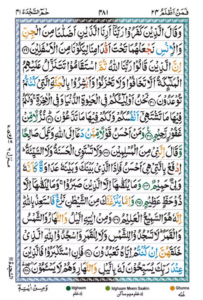 وَقَالَ الَّذِيْنَ كَفَرُوْا رَبَّنَاۤ اَرِنَا الَّذَيْنِ اَضَلّٰنَا مِنَ الْجِنِّ
وَالْاِنْسِ نَجْعَلْهُمَا تَحْتَ اَقْدَامِنَا لِيَكُوْنَا مِنَ الْاَسْفَلِيْنَ
اِنَّ الَّذِيْنَ قَالُوْا رَبُّنَا اللّٰهُ ثُمَّ اسْتَقَامُوْا تَتَنَزَّلُ عَلَيْهِمُ
الْمَلٰٓئِكَةُ اَلَّا تَخَافُوْا وَلَا تَحْزَنُوْا وَاَبْشِرُوْا بِالْجَنَّةِ الَّتِيْ كُنْتُمْ
تُوْعَدُوْنَ نَحْنُ اَوْلِيٰٓؤُكُمْ فِي الْحَيٰوةِ الدُّنْيَا وَفِي الْاٰخِرَةِ وَلَكُمْ
فِيْهَا مَا تَشْتَهِيْۤ اَنْفُسُكُمْ وَلَكُمْ فِيْهَا مَا تَدَّعُوْنَ نُزُلًا مِّنْ
غَفُوْرٍ رَّحِيْمٍ وَمَنْ اَحْسَنُ قَوْلًا مِّمَّنْ دَعَاۤ اِلَى اللّٰهِ وَعَمِلَ صَالِحًا
وَّقَالَ اِنَّنِيْ مِنَ الْمُسْلِمِيْنَ وَلَا تَسْتَوِي الْحَسَنَةُ وَلَا السَّيِّئَةُ
اِدْفَعْ بِالَّتِيْ هِيَ اَحْسَنُ فَاِذَا الَّذِيْ بَيْنَكَ وَبَيْنَهٗ عَدَاوَةٌ كَاَنَّهٗ
وَلِيٌّ حَمِيْمٌ وَمَا يُلَقّٰىهَاۤ اِلَّا الَّذِيْنَ صَبَرُوْا وَمَا يُلَقّٰىهَاۤ اِلَّا
ذُوْ حَظٍّ عَظِيْمٍ وَاِمَّا يَنْزَغَنَّكَ مِنَ الشَّيْطٰنِ نَزْغٌ فَاسْتَعِذْ بِاللّٰهِ اِنَّهٗ
هُوَ السَّمِيْعُ الْعَلِيْمُ وَمِنْ اٰيٰتِهِ الَّيْلُ وَالنَّهَارُ وَالشَّمْسُ
وَالْقَمَرُ لَا تَسْجُدُوْا لِلشَّمْسِ وَلَا لِلْقَمَرِ وَاسْجُدُوْا لِلّٰهِ الَّذِيْ
خَلَقَهُنَّ اِنْ كُنْتُمْ اِيَّاهُ تَعْبُدُوْنَ فَاِنِ اسْتَكْبَرُوْا فَالَّذِيْنَ
عِنْدَ رَبِّكَ يُسَبِّحُوْنَ لَهٗ بِالَّيْلِ وَالنَّهَارِ وَهُمْ لَا يَسْـَٔمُوْنَ